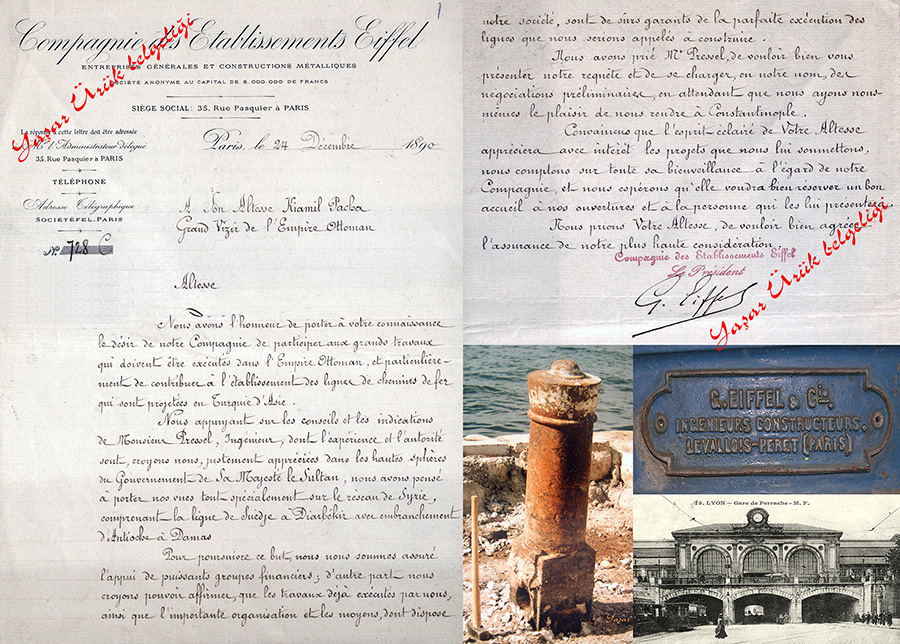 1
Compagnie des Etablissements Eiffel
ENTREPRISES GÉNÉRALES ET CONSTRUCTIONS MÉTALLIQUES
SOCIÉTÉ ANONYME AU CAPITAL DE 6.000.000 DE FRANCS
SIÈGE SOCIAL: 35. Rue Pasquier à PARIS
La réponse à cette lettre doit être adressée
à Mr l'Administrateur délégué
35. Rue Pasquier à PARIS
TÉLÉPHONE
Adresse Télégraphique
SOCIETÉFEL.PARIS
No 728 C
Paris, le 24 Décembre 1890
A Son Altesse Kiamil Pacha
Grand Vizir de l'Empire Ottoman
Altesse
Nous avons l'honneur de porter à votre connaissance
le désir de notre Compagnie de participer aux grands travaux
qui doivent être exécutés dans l'Empire Ottoman, et particulière-
ment de contribuer à l'établissement des lignes de chemins de fer
qui sont projetées en Turquie d'Asie.
Nous appuyant sur les conseils et les indications
de Monsieur Pressel, Ingénieur, dont l'expérience et l'autorité
sont, croyons nous, justement appréciées dans les hautes sphères
du Gouvernement de Sa Majesté le Sultan, nous avons pensé
à porter nos vues tout spécialement sur le réseau de Syrie,
comprenant la ligne de Suèdje à Diarbékir avec embranchement
d'Antioche à Damas
Pour poursuivre ce but, nous nous sommes assuré
l'appui de puissants groupes financiers; d'autre part nous
croyons pouvoir affirmer, que les travaux déjà exécutés par nous,
ainsi que l'importante organisation et les moyens, dont dispose
Yaşar Ürük belgeliği
notre société, sont de sûrs garants de la parfaite exécution des
lignes que nous serions appelés à construire.
Nous avons prié Mr Pressel, de vouloir bien vous
présenter notre requête et de se charger, en notre nom, des
négociations préliminaires, en attendant que nous ayons nous-
mêmes le plaisir de nous rendre à Constantinople.
Convaincus que l'esprit éclairé de Votre Altesse
appréciera avec intérêt les projets que nous lui soumettons,
nous comptons sur toute sa bienveillance à l'égard de notre
Compagnie, et nous espérons qu'elle voudra bien réserver un bon
accueil à nos ouvertures et à la personne qui les lui présentera.
Nous prions Votre Altesse, de vouloir bien agréer
l'assurance de notre plus haute considération.
Compagnie des Etablissements Eiffel
Le Président
G. Eiffel
Yaşar Ürük belgeliği
Yaşar
G. EIFFEL & CIE.
INGENIEURS CONSTRUCTEURS.
LEVALLOIS-PERET (PARIS)
15. LYON – Gare de Perrache – M. F.